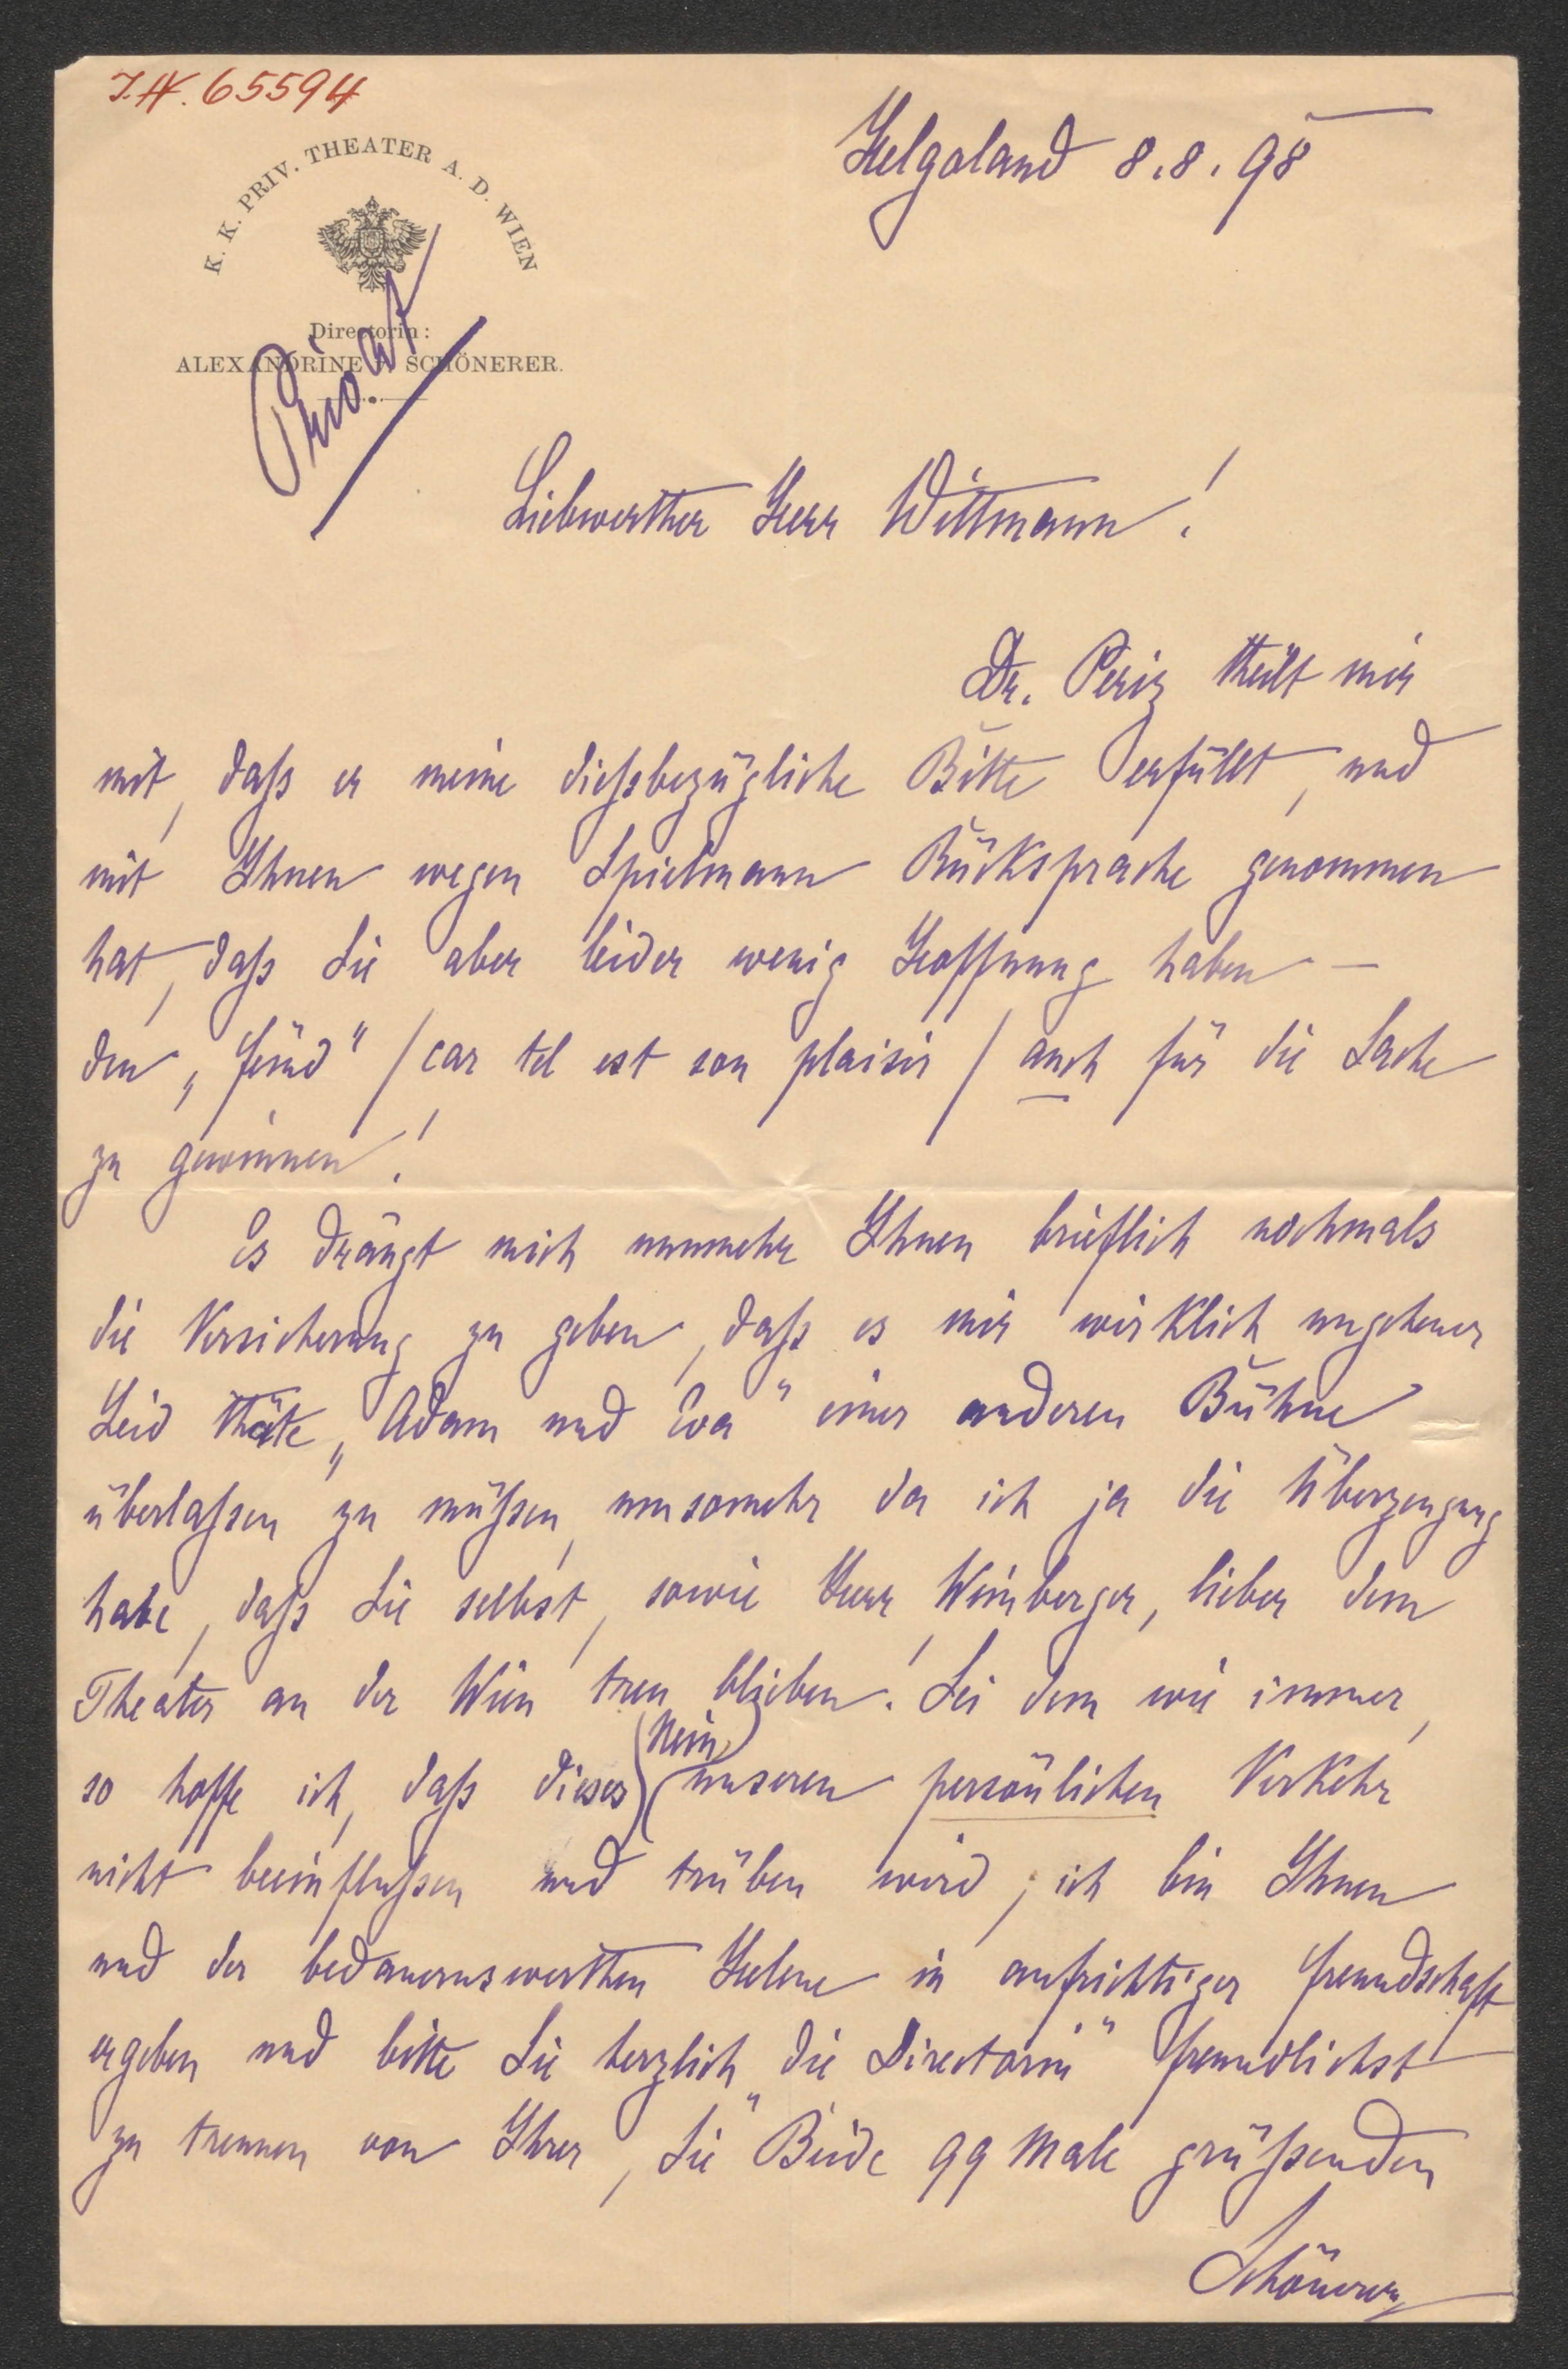 I.N. 65594
K. K. PRIV. THEATER A. D. WIEN
Directorin:
ALEXANDRINE V. SCHÖNERER.
Privat
Helgoland 8.8.98
Liebwerther Herr Wittmann!
Dr. theilt mir
mit, daß er meine dießbezügliche Bitte erfüllt, und
mit Ihnen wegen Spielmann Rücksprache genommen
hat, daß Sie aber leider wenig Hoffnung haben –
den „Feind" / car tel est son plaisir / auch für die Sache
zu gewinnen!
Es drängt mich nunmehr Ihnen brieflich nochmals
die Versicherung zu geben, daß es mir wirklich ungeheuer
Leid thäte „Adam und Eva" einer anderen Bühne
überlaßen zu müßen, umsomehr da ich ja die Überzeugung
habe, daß Sie selbst, sowie Herr Weinberger, lieber dem
Theater an der Wien treu blieben! Sei dem wie immer,
so hoffe ich, daß dieses (Nein) unseren persönlichen Verkehr
nicht beeinflußen und trüben wird; ich bin Ihnen
und der bedauernswerthen Helene in aufrichtiger Freundschaft
ergeben und bitte Sie herzlich „die Directorin" freundlichst
zu trennen von Ihrer, Sie Beide 99 Male grüßenden
Schönerer